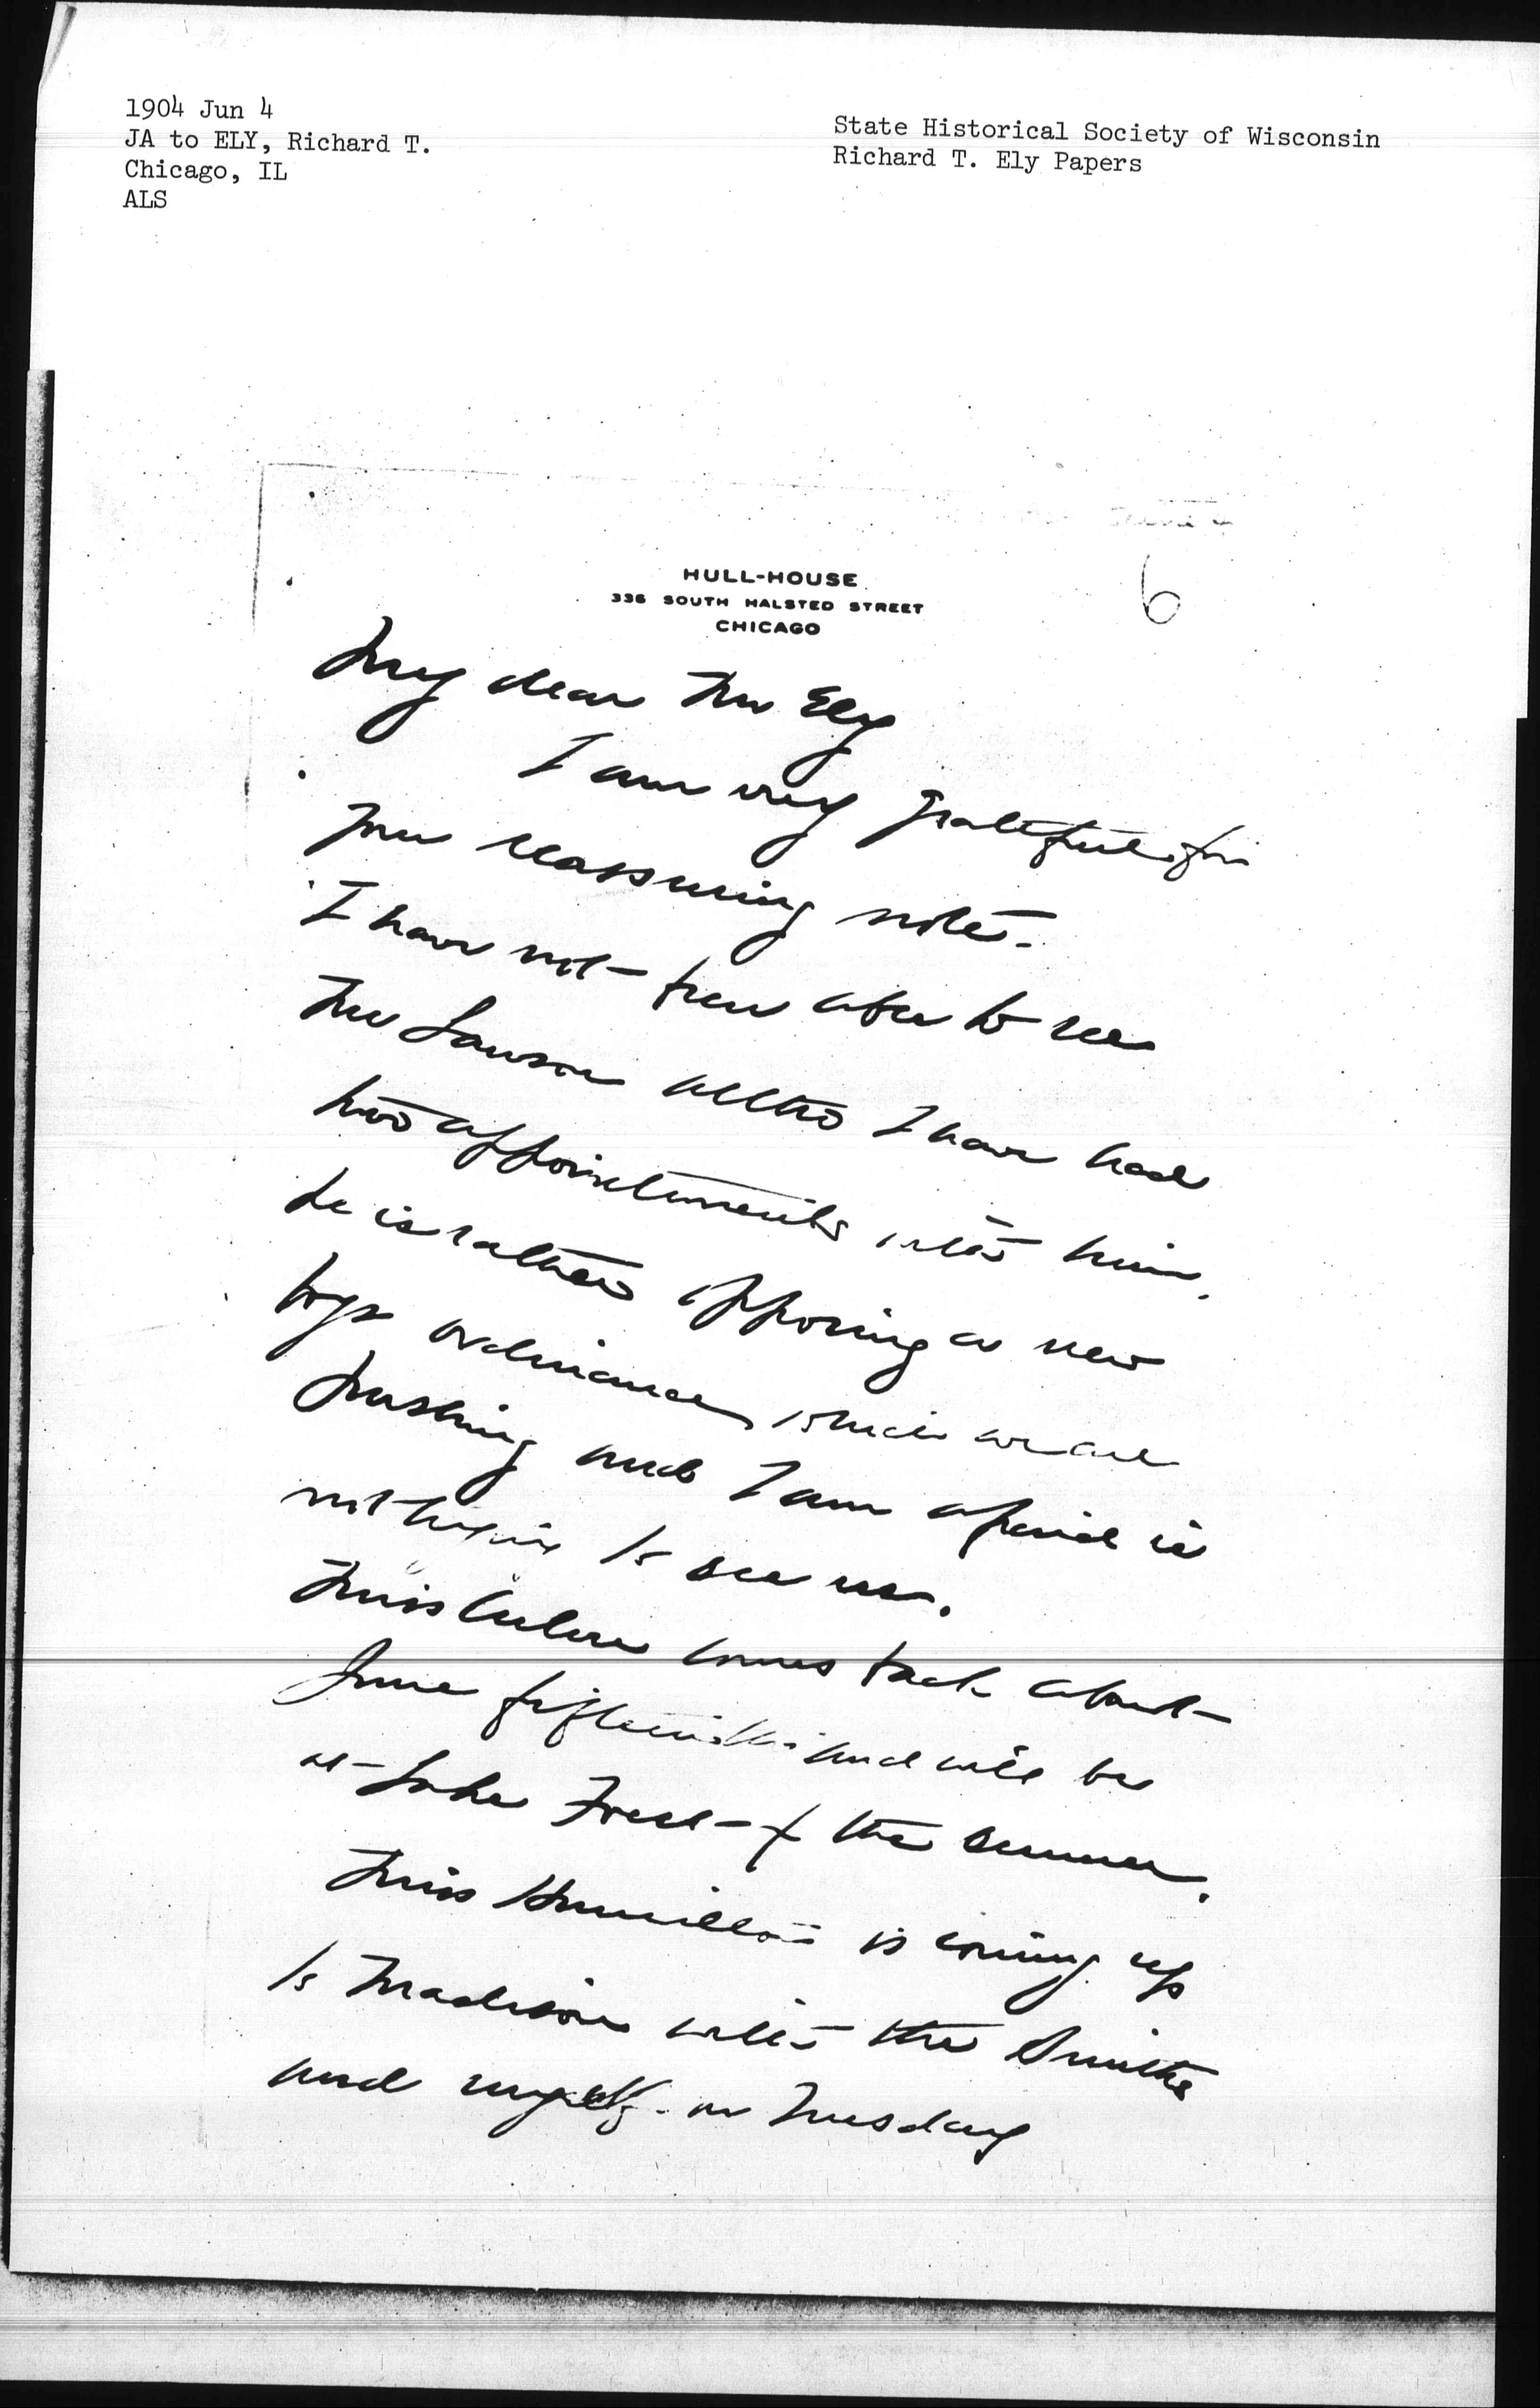 1904 Jun 4
JA to ELY, Richard T.
Chicago, IL
ALS
State Historical Society of Wisconsin
Richard T. Ely Papers
6
HULL-HOUSE
336 SOUTH HALSTED STREET
CHICAGO
My dear Mr Ely
I am very grateful for
your reassuring note.
I have not been able to see
Mr Lawson altho I have had
two appointments with him.
He is rather opposing a new
boys ordinance, which we are
pushing and I am afraid is
not to see us.
Miss Culver comes back about
June fifteenth and will be
at Lake Forest f the summer.
Miss Hamilton is coming up
to Madison with the Smiths
and myself on Tuesday